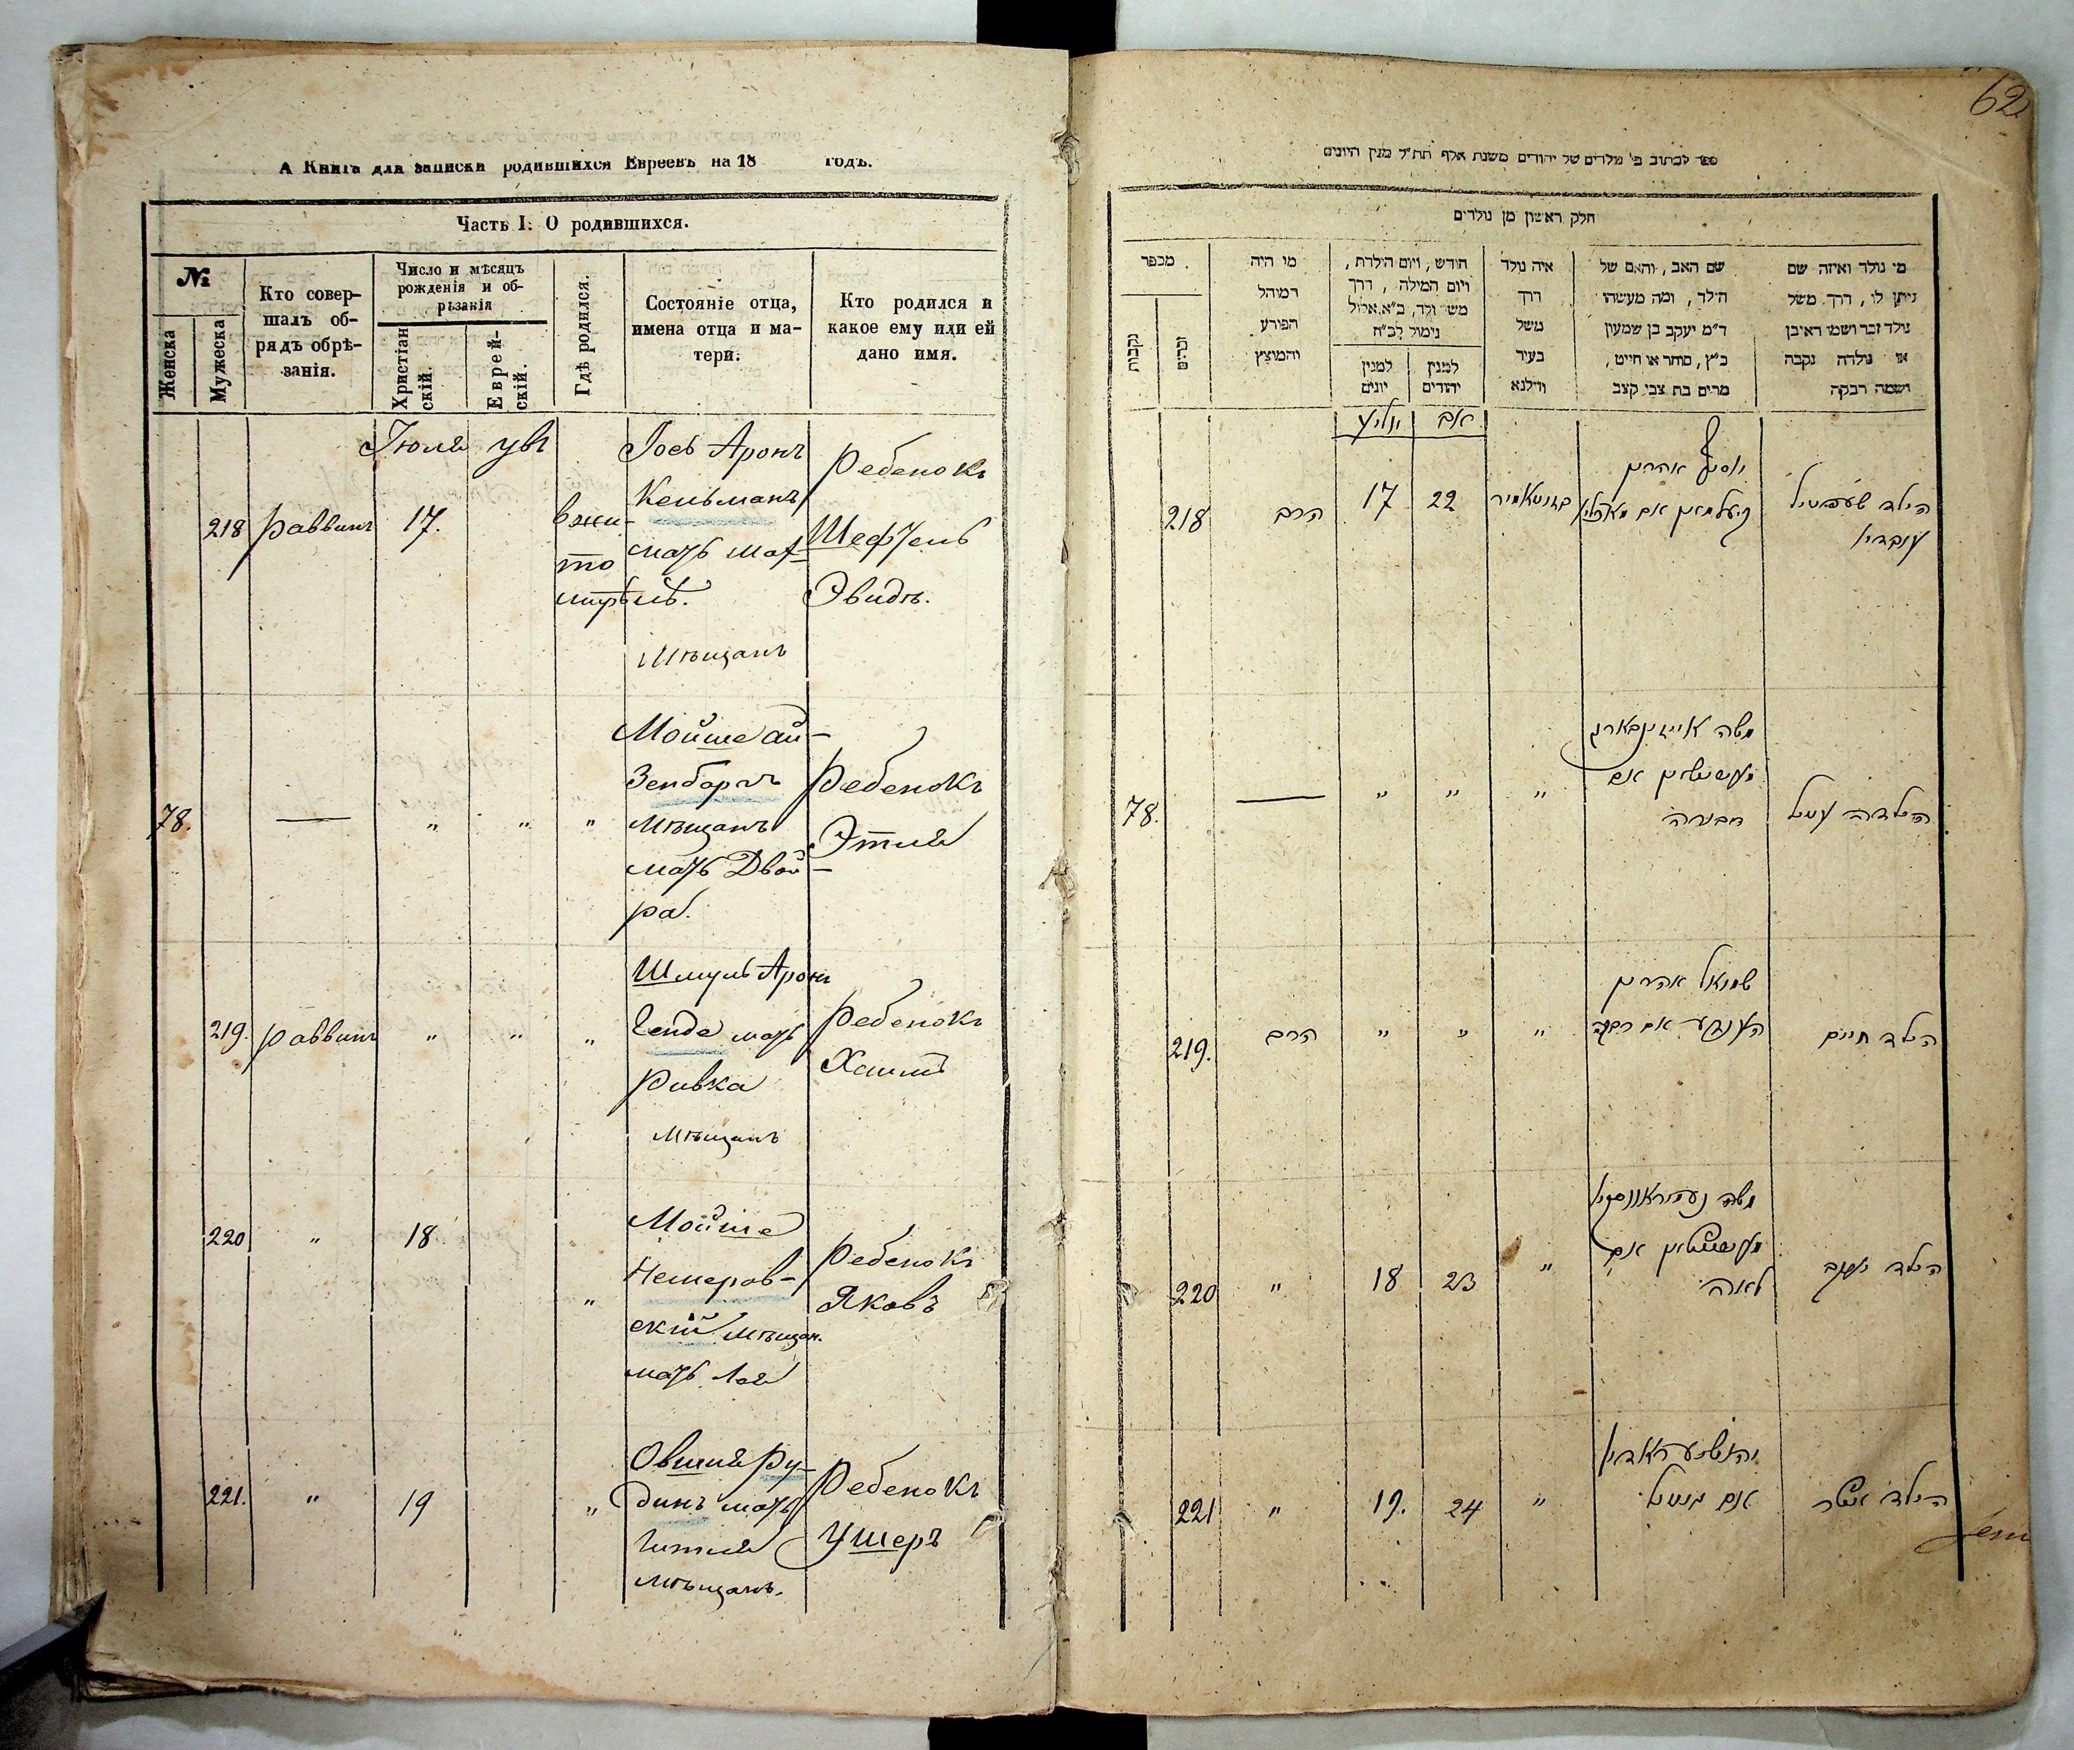 А Книга для записки родившихся Евреевъ на 18 годъ.
Часть I. О родившихся.
№
Женска
Мужеска
Кто совер-
шалъ об-
рядъ обрѣ-
занія.
Число и мѣсяцъ
рожденія и об-
рѣзанія
Христіан
скій.
Еврей-
скій.
Гдѣ родился.
Состояніе отца,
имена отца и ма-
тери.
Кто родился и
какое ему или ей
дано имя.
Іюля
218 раввинъ 17.
в жи-
то
мирѣ
Іось Аронъ
Кельманъ
мать
Мѣщанъ
Ребенокъ
Шефтель
Эвидъ.
78. — " " "
Мойше Ай-
зенбергъ
Мѣщанъ
мать Двой-
ра.
Ребенокъ
Этля
219. раввинъ " " "
Шмуль Аронъ
Генде мать
Ривка
Мѣщанъ
Ребенокъ
Хаимъ
220 " 18 "
Мойше
Немеров-
скій мѣщан.
мать Лая
Ребенокъ
Яковъ
221. " 19 "
Овшия Ру-
динъ мать
Гитля
мѣщанъ.
Ребенокъ
Ушеръ
62
ספר לכתוב בו נולדים של יהודים משנת אלף תת״ל מנין היונים
חלק ראשון מן נולדים
מי נולד ואיזה שם
ניתן לו, דרך משל
נולד זכר ושמו ראובן
או נולדה נקבה
ושמה רבקה
שם האב, והאם של
הילד, ומה מעשהו
ד״מ יעקב בן שמעון
כ״ץ, סוחר או חייט,
מרים בת צבי קצב
איה נולד
דרך
משל
בעיר
ווילנא
חודש, ויום הולדת,
ויום המילה, דרך
משל ולד, ב״א אלול
נימול לב״ח
למנין
יהודים
למנין
יונים
מי היה
המוהל
הפורע
והמוצץ
מספר
זכרים
נקבות
אב
יוליי
218 הרב 17 22
יוסף אהרון
הילד
78. — " " "
משה אייזנבארג
אם
דבורה
הילדה עטיל
219. הרב " " "
שמואל אהרון
אם רבקה
הילד חיים
220 " 18 23 "
משה
אם
לאה
הילד יעקב
221 " 19. 24 "
אם
הילד אשר